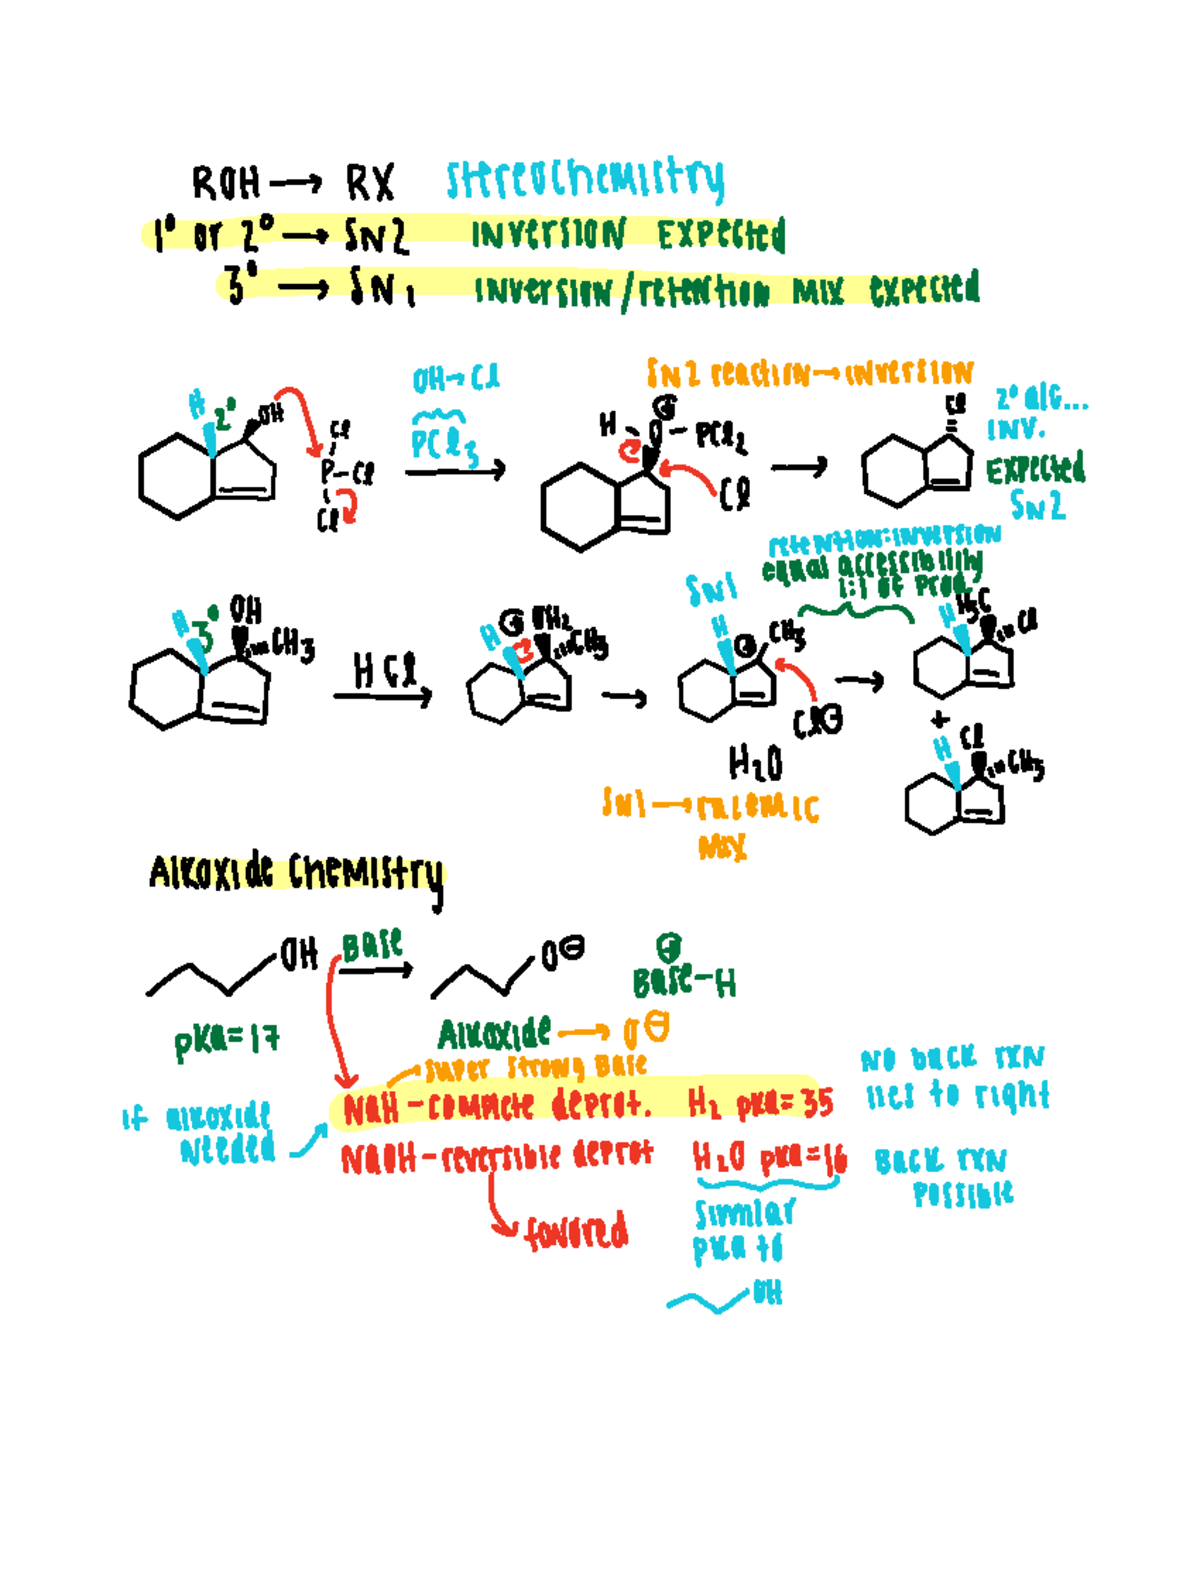 ROH → RX Stereochemistry
1° or 2° → SN2 INVERSION EXPECTED
3° → SN1 INVERSION/retention MIX expected
OH→Cl
SN2 reaction → inversion
H 2° OH
PCl3
Cl
P-Cl
Cl
H-O⊕-PCl2
Cl
Cl
2° alc...
INV.
EXPECTED
SN2
retention:inversion
equal accessibility
1:1 of prod.
SN1
H 3° OH
CH3
HCl
H ⊕ OH2
CH3
H ⊕ CH3
Cl⊖
H2O
H H3C
Cl
+
H Cl
CH3
SN1 → racemic
MIX
Alkoxide Chemistry
OH Base
O⊖
⊕
Base-H
pKa=17
Alkoxide → O⊖
super strong Base
NaH - complete deprot. H2 pKa=35
No back rxn
lies to right
if alkoxide
Needed
NaOH - reversible deprot H2O pKa=16
Back rxn
possible
favored
Similar
pKa to
OH